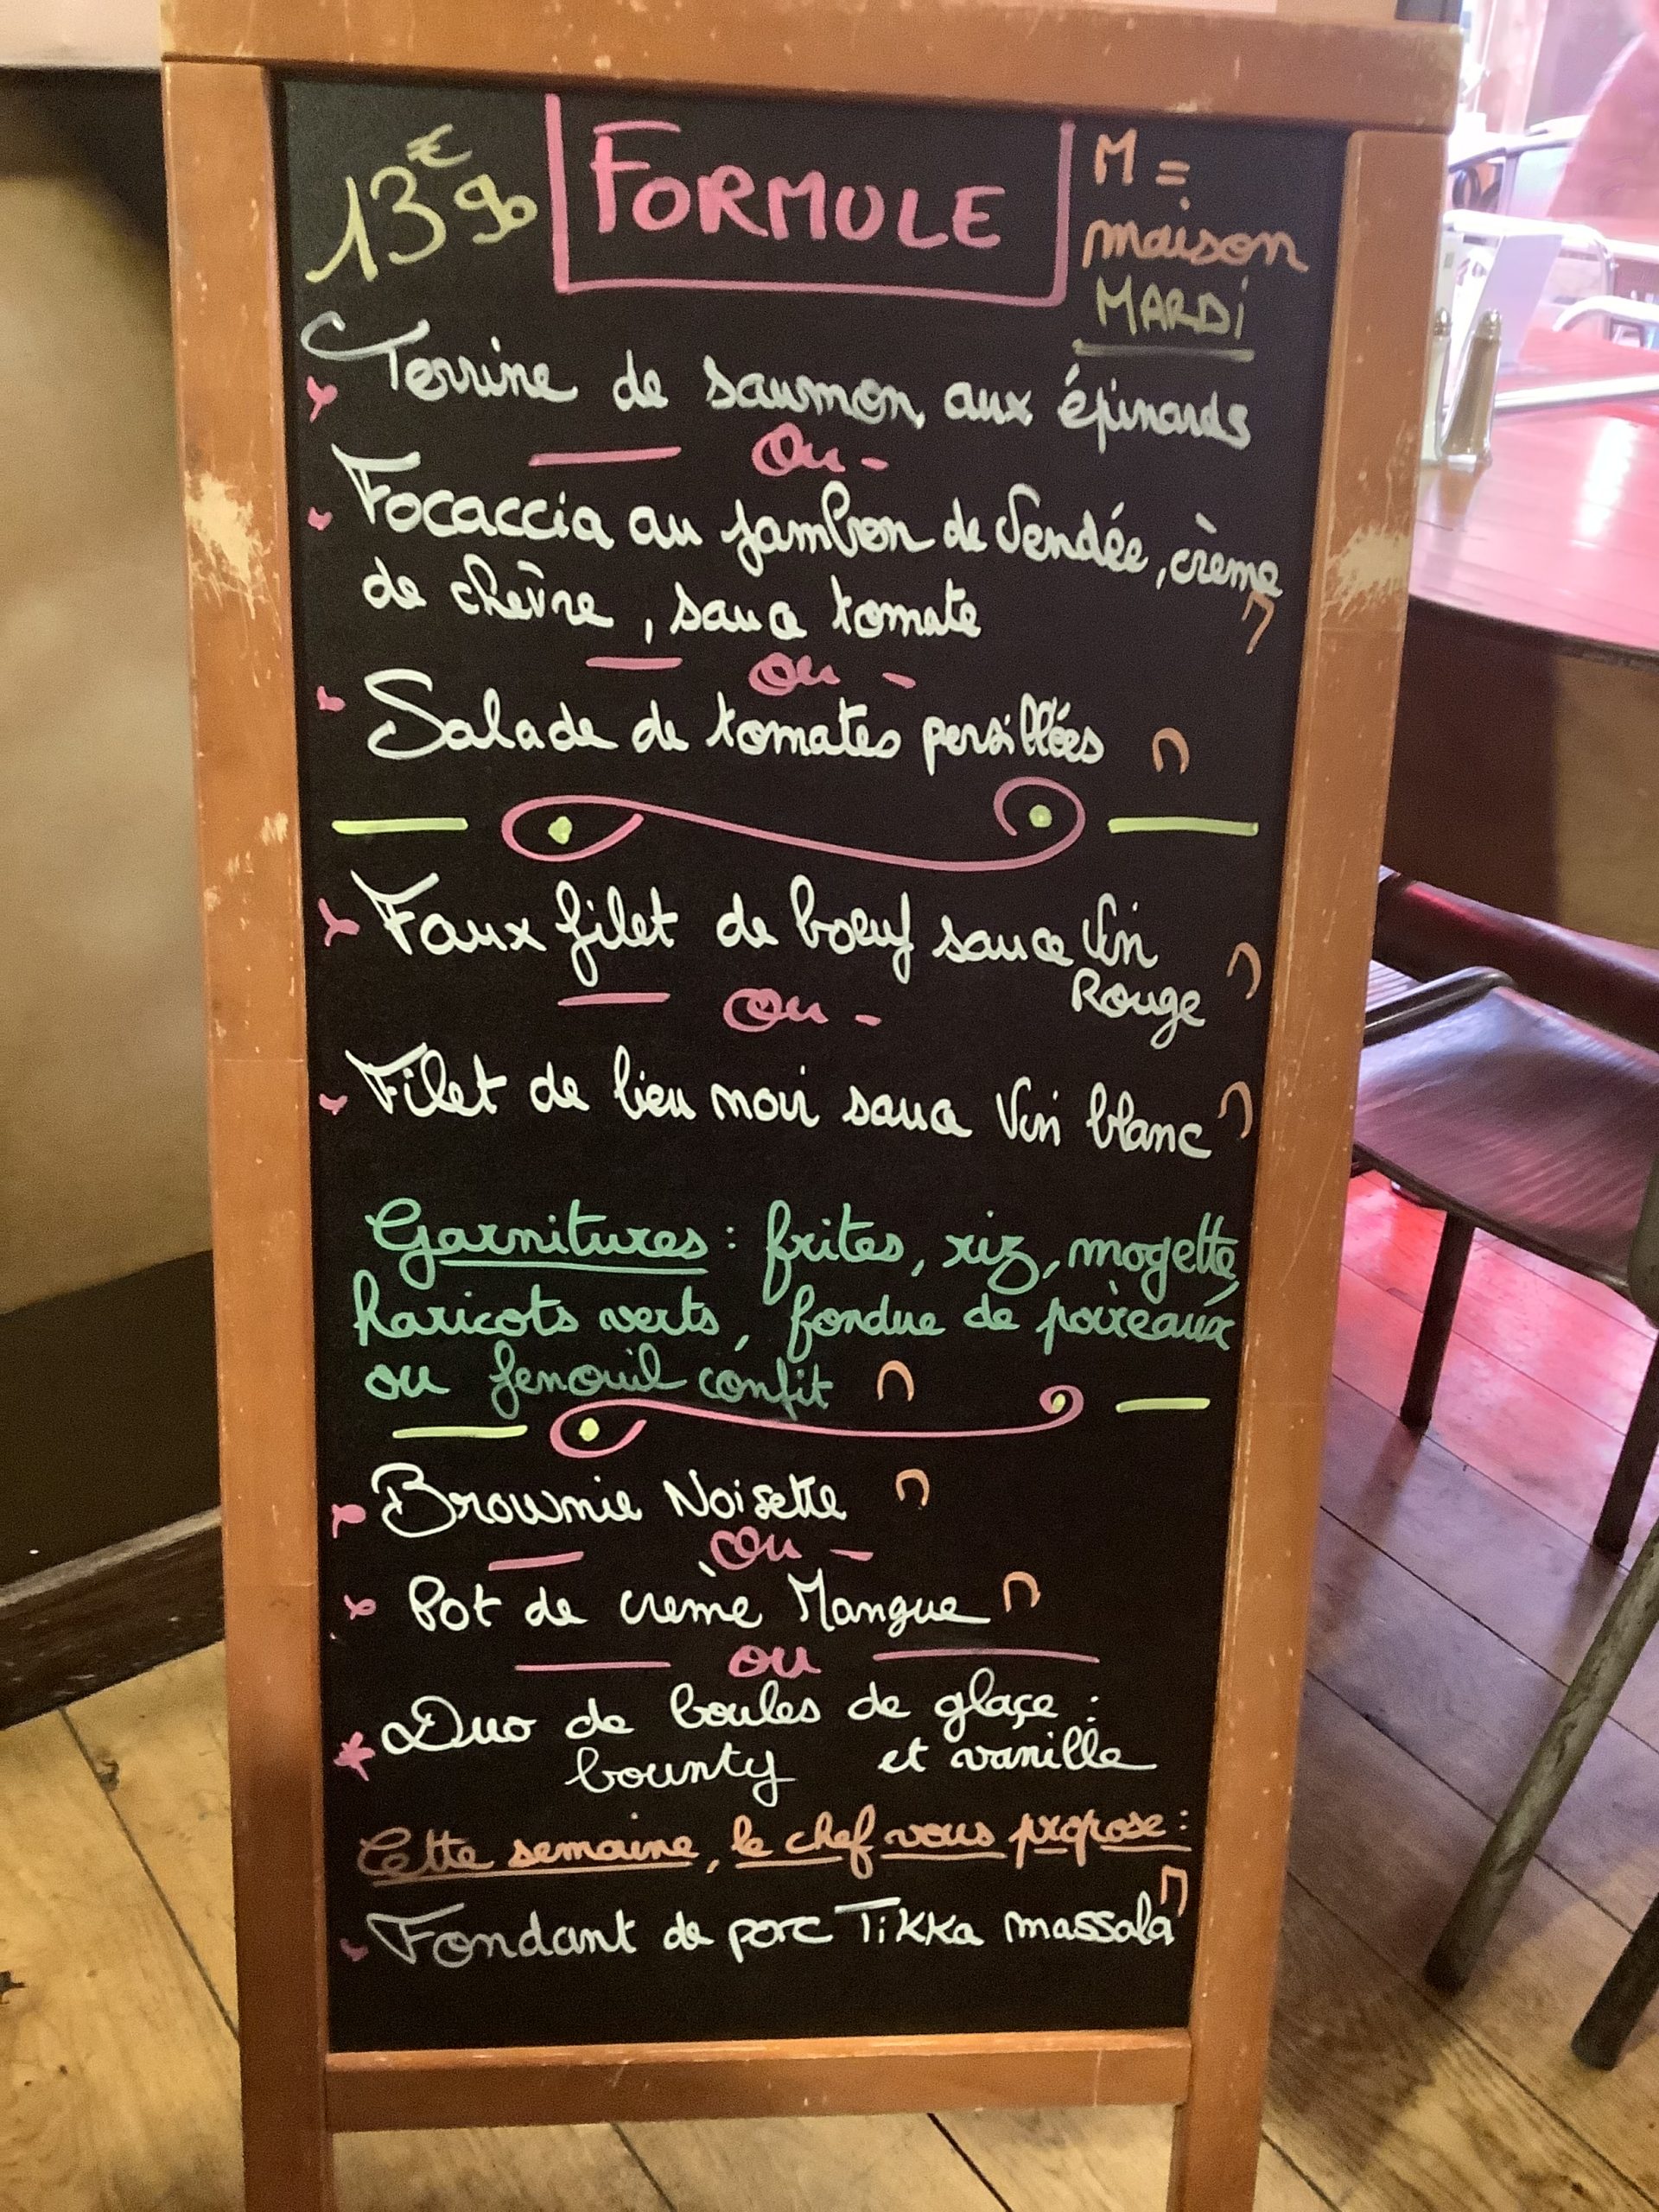 13€90 FORMULE M =
maison
MARDi
Terrine de saumon aux épinards
Ou -
Focaccia au jambon de Vendée, crème
de chèvre, sauce tomate M
Ou -
Salade de tomates persillées M
Faux filet de boeuf sauce Vin
Rouge M
Ou -
Filet de lieu noir sauce Vin blanc M
Garnitures : frites, riz, mogette,
haricots verts, fondue de poireaux
ou fenouil confit M
Brownie Noisette M
Ou -
Pot de crème Mangue M
Ou
Duo de boules de glaçe :
bounty et vanille
Cette semaine, le chef vous propose :
Fondant de porc Tikka massala M